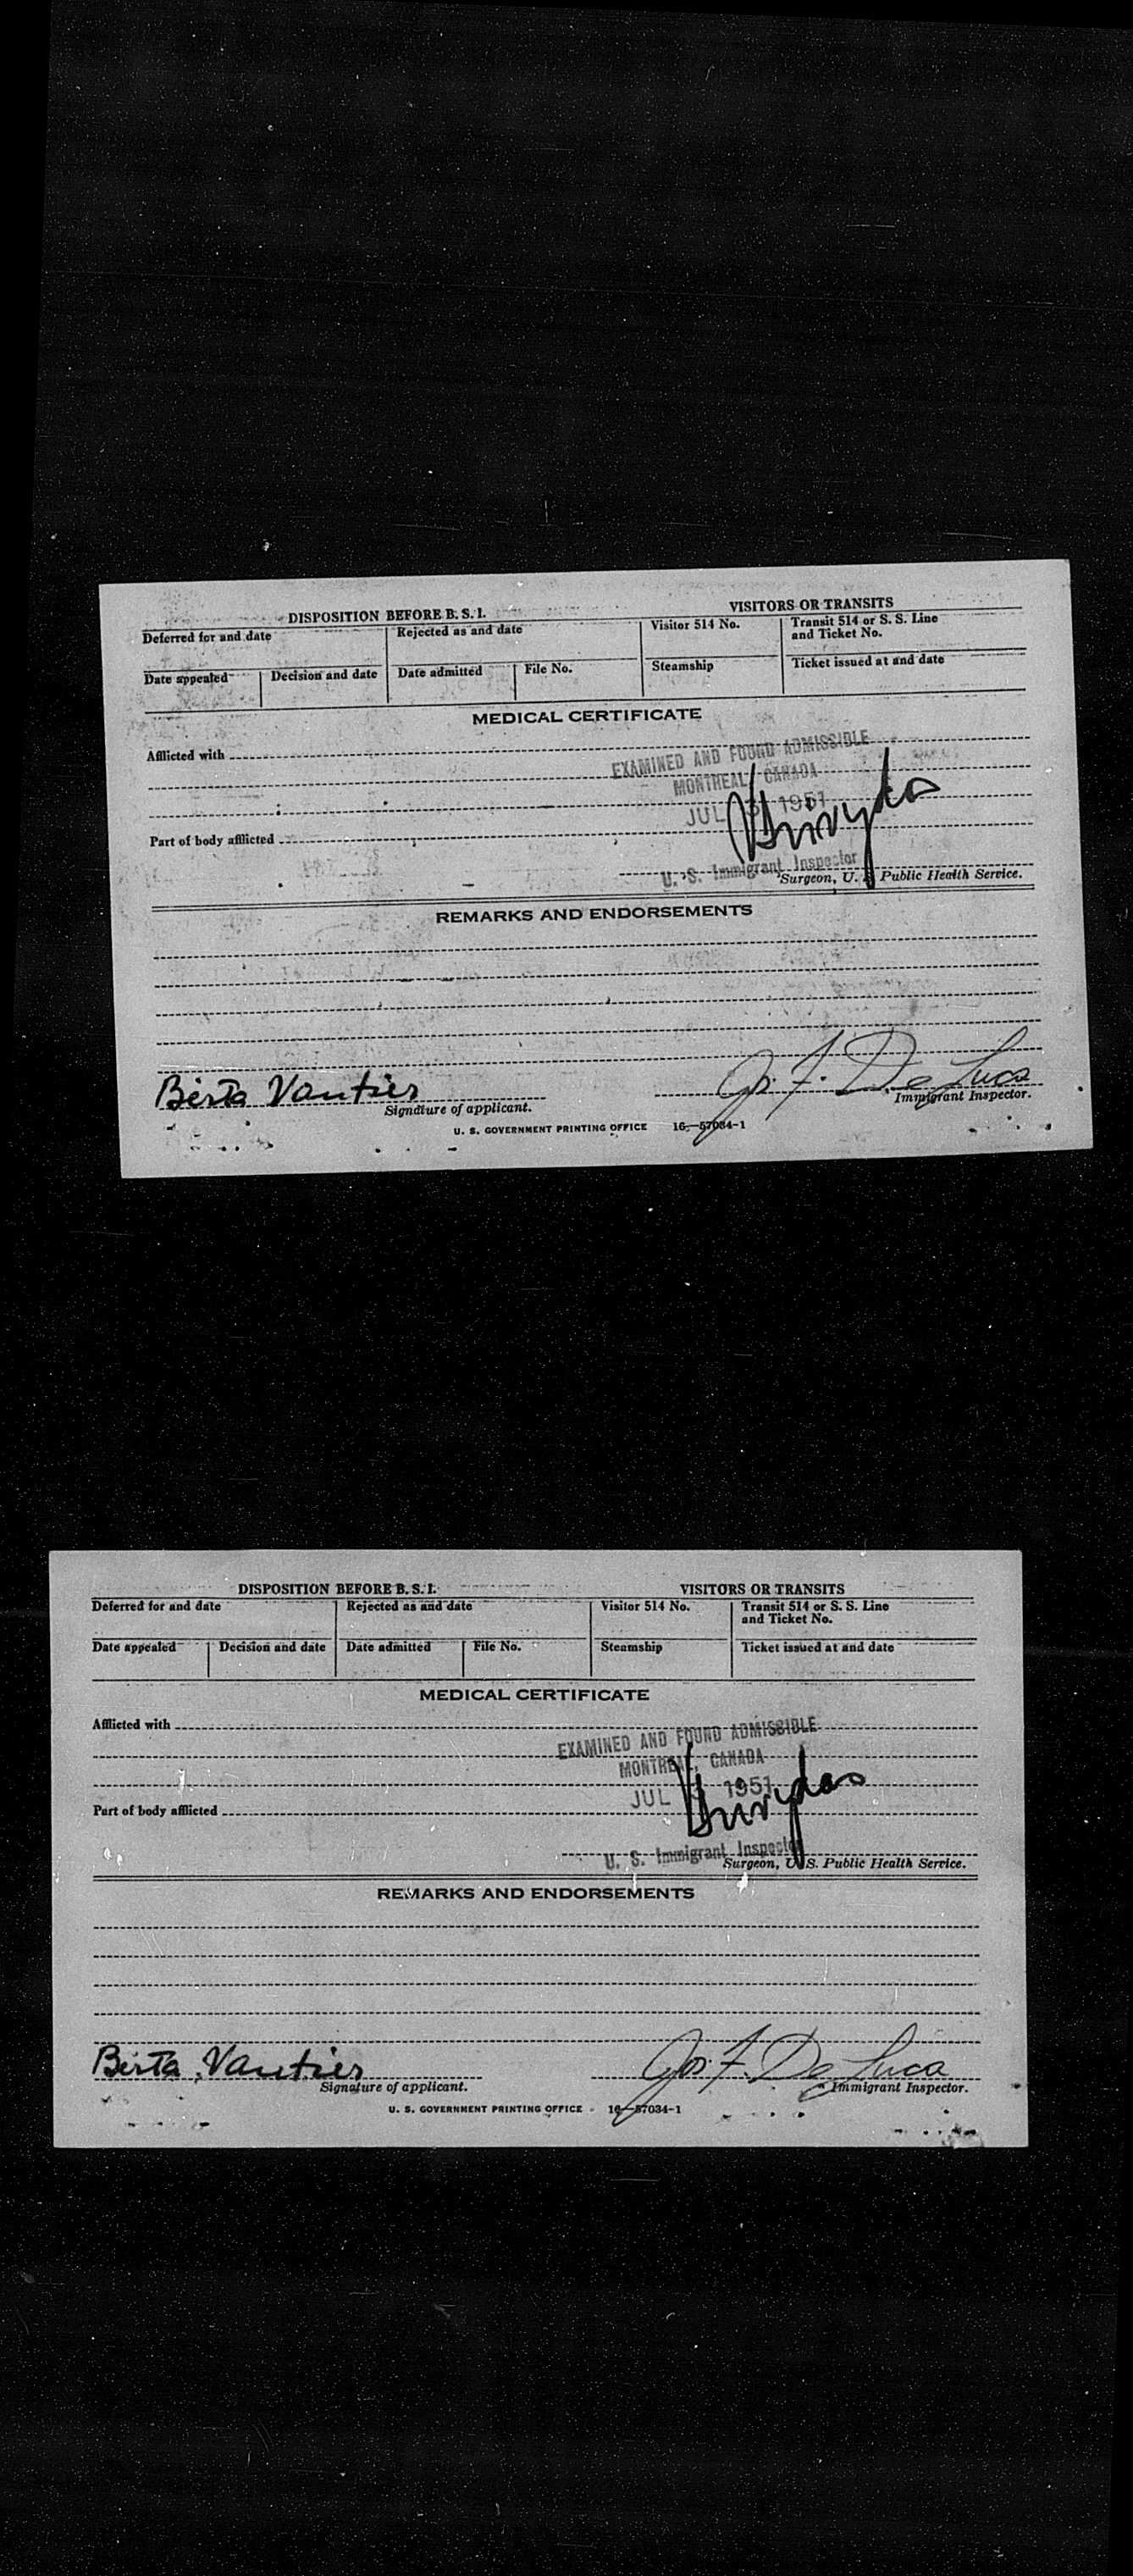 DISPOSITION BEFORE B. S. I.
VISITORS OR TRANSITS
Deferred for and date
Rejected as and date
Visitor 514 No.
Transit 514 or S. S. Line
and Ticket No.
Date appealed
Decision and date
Date admitted
File No.
Steamship
Ticket issued at and date
MEDICAL CERTIFICATE
Afflicted with
EXAMINED AND FOUND ADMISSIBLE
MONTREAL, CANADA
JUL 3 1951
Part of body afflicted
U. S. Immigrant Inspector
Surgeon, U. S. Public Health Service.
REMARKS AND ENDORSEMENTS
Berta Vautier
Jos. F. De Luca
Signature of applicant.
Immigrant Inspector.
U. S. GOVERNMENT PRINTING OFFICE 16—57034-1
DISPOSITION BEFORE B. S. I.
VISITORS OR TRANSITS
Deferred for and date
Rejected as and date
Visitor 514 No.
Transit 514 or S. S. Line
and Ticket No.
Date appealed
Decision and date
Date admitted
File No.
Steamship
Ticket issued at and date
MEDICAL CERTIFICATE
Afflicted with
EXAMINED AND FOUND ADMISSIBLE
MONTREAL, CANADA
JUL 3 1951
Part of body afflicted
U. S. Immigrant Inspector
Surgeon, U. S. Public Health Service.
REMARKS AND ENDORSEMENTS
Berta Vautier
Jos. F. De Luca
Signature of applicant.
Immigrant Inspector.
U. S. GOVERNMENT PRINTING OFFICE 16—57034-1